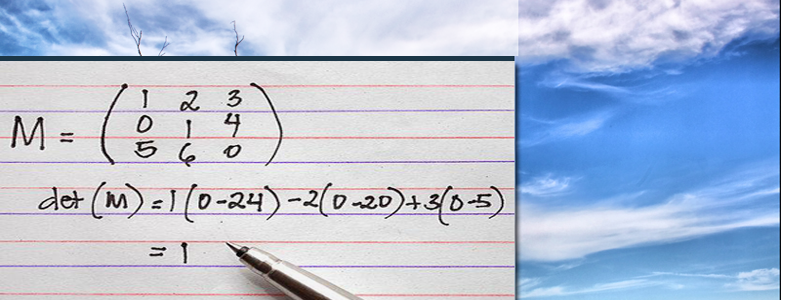 M = ( 1 2 3
0 1 4
5 6 0 )
det (M) = 1(0-24) -2(0-20)+3(0-5)
= 1